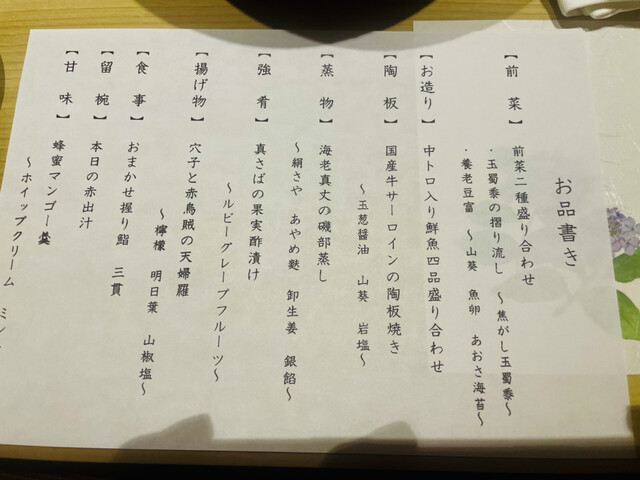 お品書き
【前菜】 前菜二種盛り合わせ
・玉蜀黍の摺り流し ～焦がし玉蜀黍～
・養老豆富 ～山葵 魚卵 あおさ海苔～
【お造り】 中トロ入り鮮魚四品盛り合わせ
【陶板】 国産牛サーロインの陶板焼き
～玉葱醤油 山葵 岩塩～
【蒸物】 海老真丈の磯部蒸し
～絹さや あやめ麩 卸生姜 銀餡～
【強肴】 真さばの果実酢漬け
～ルビーグレープフルーツ～
【揚げ物】 穴子と赤烏賊の天婦羅
～檸檬 明日葉 山椒塩～
【食事】 おまかせ握り鮨 三貫
【留椀】 本日の赤出汁
【甘味】 蜂蜜マンゴー羹
～ホイップクリーム